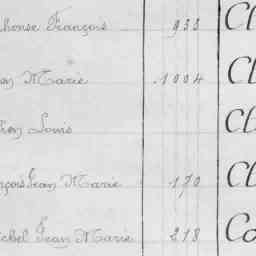 phonse François 933 Cl
en Marie 1004 Cl
hen Louis Cl
nçois Jean Marie 170 Cl
ichel Jean Marie 218 Co